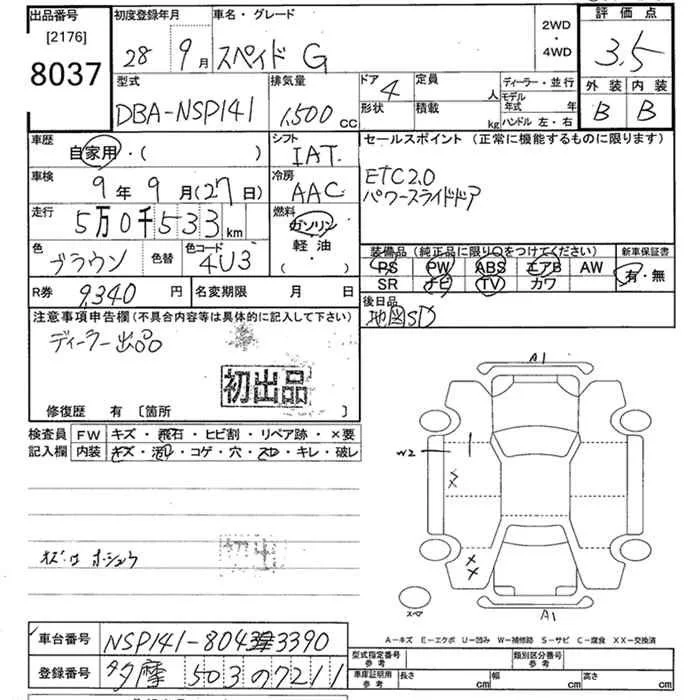 出品番号
[2176]
8037
初度登録年月
28 9月
車名・グレード
スペイド G
2WD
・
4WD
評価点
3.5
外装 内装
B B
型式
DBA-NSP141
排気量
1,500 CC
ドア 4
形状
定員 人
積載 kg
ディーラー・並行
モデル年式 年
ハンドル 左・右
車歴
自家用・( )
シフト
IAT
セールスポイント (正常に機能するものに限ります)
ETC2.0
パワースライドドア
車検
9年9月(27日)
冷房
AAC
走行
5万0千533km
燃料
ガソリン
軽油
( ・ )
色
ブラウン
色替
色コード
4U3
装備品 (純正品に限り○をつけてください)
PS PW ABS エアB AW
SR ナビ TV カワ
新車保証書
有・無
R券 9,340 円
名変期限 月 日
後日品
地図SD
注意事項申告欄 (不具合内容等は具体的に記入して下さい)
ディーラー出品
初出品
修復歴 有 [箇所 ]
検査員
記入欄
FW キズ・飛石・ヒビ割・リペア跡・×要
内装 キズ・汚れ・コゲ・穴・スレ・キレ・破レ
A1
W2
A1
スペア
A-キズ E-エクボ U-凹み W-補修跡 S-サビ C-腐食 XX-交換済
車台番号
NSP141-8043390
登録番号
多摩 503 の 7211
型式指定番号
参考
類別区分番号
参考
車庫証明用
参考
長さ cm
幅 cm
高さ cm